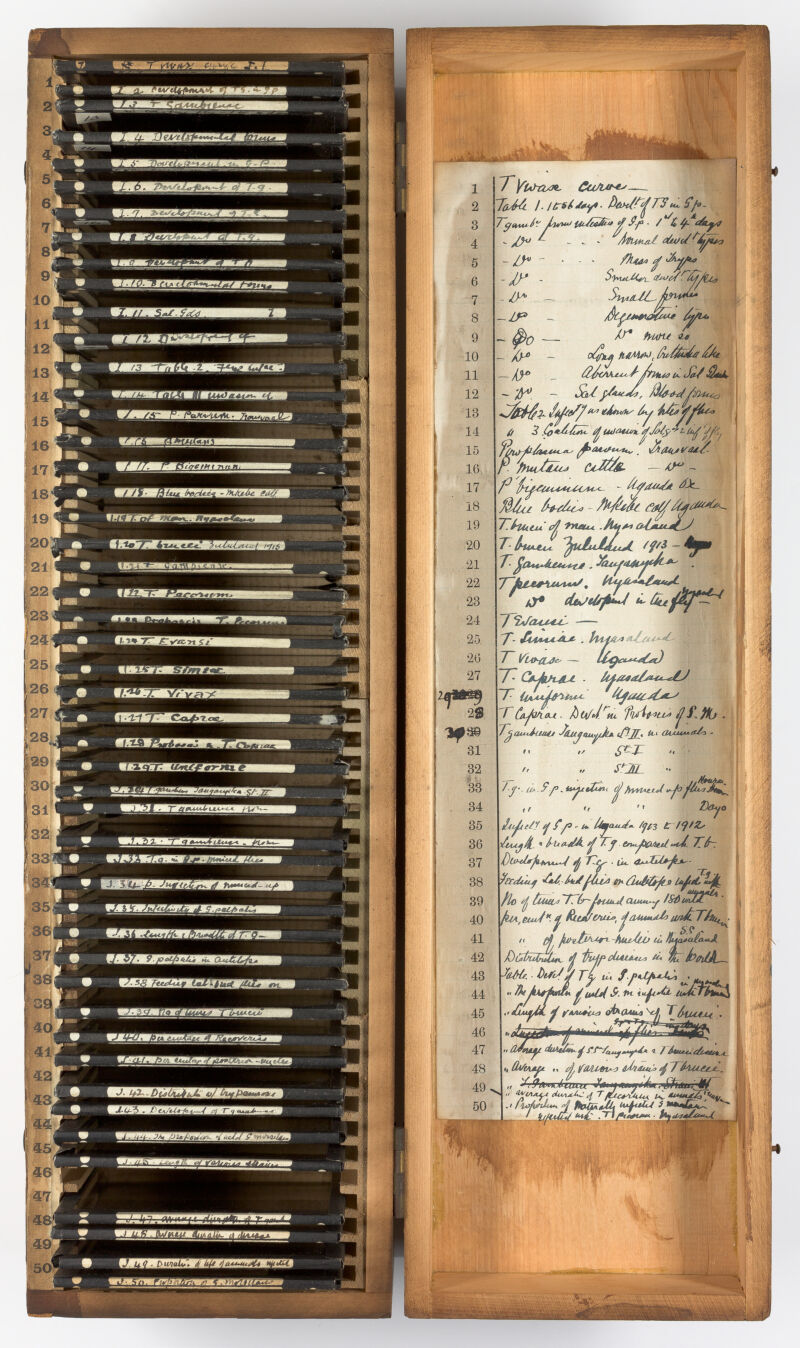 T vivax curve I.1
1
I 2 Development of T.G. in G p
2
I 3 T Gambiense
3
I. 4 Developmental forms
4
I 5 Development in G-P.
5
I. 6. Development of T.g.
6
I. 7. Development of T.G.
7
I. 8 Development of T.G.
8
I. 9 Development of T
9
I. 10. Developmental forms
10
I. 11. Sal. Gds. I
11
I 12 Development of
12
I. 13 Table. 2.
13
I. 14. Table III invasion of
14
I. 15 P. Parvum. Transvaal
15
I 16
16
I 17. P Bigeminum
17
I 18. Blue bodies - Mkebe calf
18
I. 19 T. of Man. Nyasaland
19
I. 20 T. brucei Zululand 1913
20
I. 21 T. Gambiense
21
I. 22 T. Pecorum
22
I. 23 Proboscis T. Pecorum
23
I. 24 T. Evansi
24
I. 25 T. Simiæ
25
I. 26. T. Vivax
26
I. 27 T. Capræ
27
I. 28 Proboscis T. Capræ
28
I. 29 T. uniforme
29
I. 30 T gambiense Tanganyika St. II
30
I. 31. T gambiense
31
I. 32. T gambiense. from
32
I. 33 T.g. in G.p. minced flies
33
I. 34 p. Injection of minced up
34
I. 35. Infectivity of G. palpalis
35
I. 36 Length & Breadth of T. G-
36
I. 37. G. palpalis in Antelope
37
I. 38 Feeding lab: bred flies on
38
I. 39. No of times T brucei
39
I. 40. percentage of Recoveries
40
I. 41. Percentage of posterior-nuclei
41
42
I. 42. Distribution of tryp diseases
43
I. 43. Development of T gambiense
44
I. 44. The Proportion of wild G morsitans
45
I. 45. Length of various strains
46
47
I. 47. Average duration of T
48
I. 48. Average duration of disease
49
I. 49. Duration of life of animals infected
50
I. 50. Proportion of G. morsitans
1 T Vivax curve —
2 Table 1. 1 to 56 days. Devlt. of TG in G p.
3 T gamb. from intestines of G.p. 1st to 4th days
4 - Do - - - Normal devlt. types
5 - Do - - - Mass of Tryps
6 - Do - Smaller devlt. types
7 - Do - Small forms
8 - Do - Degenerative types
9 - Do - Do more so
10 - Do - Long narrow, Crithidia like
11 - Do - Aberrent forms in Sal Glands
12 - Do - Sal glands, Blood forms
13 Table 2 Infecty. as shown by bites of flies
14 " 3 Coalition of invasion of
15 Piroplasma parvum. Transvaal.
16 P. mutans cattle - Do -
17 P. bigeminum - Uganda Ox
18 Blue bodies - Mkebe calf Uganda
19 T. brucei of man. Nyasaland
20 T. brucei Zululand 1913 -
21 T. Gambiense. Tanganyika
22 T pecorum. Nyasaland
23 Do development in tse fly - Nyasaland
24 T Evansi —
25 T. Simiae. Nyasaland
26 T Vivax — Uganda
27 T. Caprae. Nyasaland
29 T. uniforme Uganda
28 T Caprae. Devlt. in Proboscis of G. M.
30 T gambiense Tanganyika St II. in animals.
31 " " St I "
32 " " St III "
33 T.g. in G.p. injection of minced up flies Hours
34 " " " " Days
35 Infecty. of G p - in Uganda 1903 to 1912
36 Length & breadth of T.g. compared with T.b.
37 Development of T.g. in antelope
38 Feeding Lab. bred flies on Antelope infected with T.g.
39 No of times T. b found among 180 wild animals.
40 per, cent. of Recoveries, of animals with T brucei
41 " of posterior nuclei in Nyasaland
42 Distribution of tryp diseases in the World
43 Table. Devt. of T g in G. palpalis
44 " The proportion of wild G. m infected with T brucei
45 " Length of various strains of T brucei.
46
47 " Average duration of SS Tanganyika & T brucei disease
48 " Average " of various strains of T brucei.
49 T. Gambiense Tanganyika. Strain
" average duratn. of T pecorum in animals
50 " Proportion of Naturally infected G morsitans
infected with T pecorum. Nyasaland